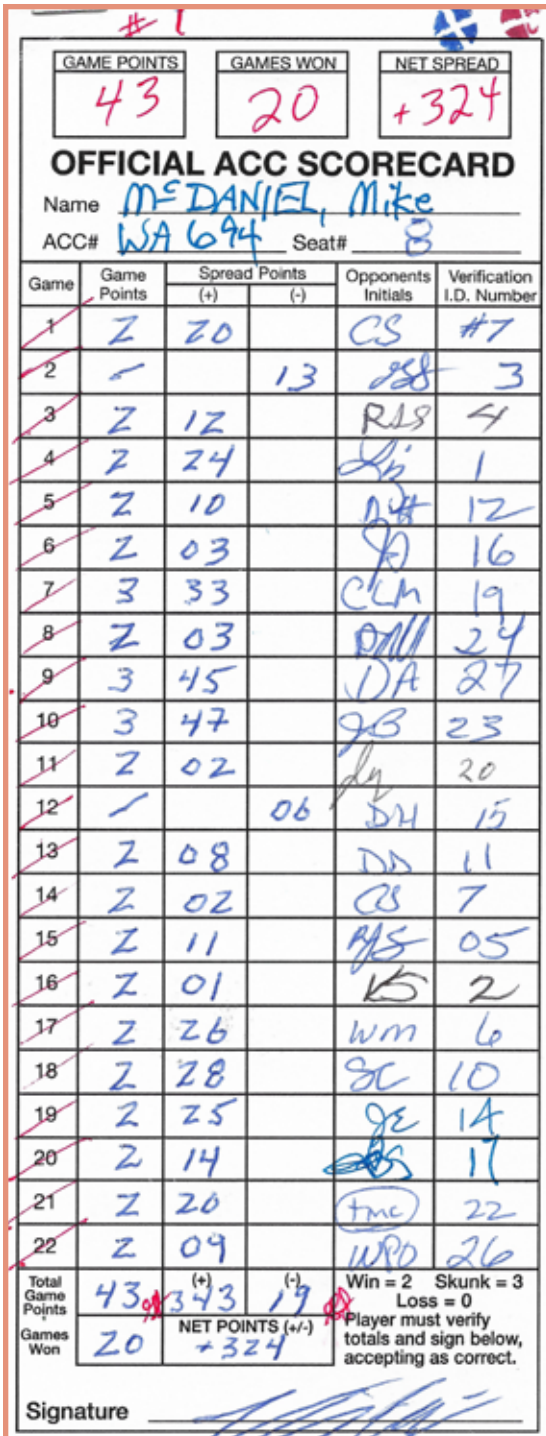 # 1
GAME POINTS GAMES WON NET SPREAD
43 20 +324
OFFICIAL ACC SCORECARD
Name McDANIEL, Mike
ACC# WA 694 Seat# 8
Game Game Points Spread Points (+) (-) Opponents Initials Verification I.D. Number
1 2 20 CS #7
2 – 13 3
3 2 12 RLS 4
4 2 24 1
5 2 10 12
6 2 03 16
7 3 33 CLM 19
8 2 03 24
9 3 45 DA 27
10 3 47 JB 23
11 2 02 20
12 – 06 DH 15
13 2 08 DD 11
14 2 02 CS 7
15 2 11 RJS 05
16 2 01 KS 2
17 2 26 WM 6
18 2 28 SC 10
19 2 25 JE 14
20 2 14 17
21 2 20 tmc 22
22 2 09 WPO 26
Total Game Points 43 (+) 343 (-) 19 Win = 2 Skunk = 3
Loss = 0
Games Won 20 NET POINTS (+/-) +324 Player must verify
totals and sign below,
accepting as correct.
Signature